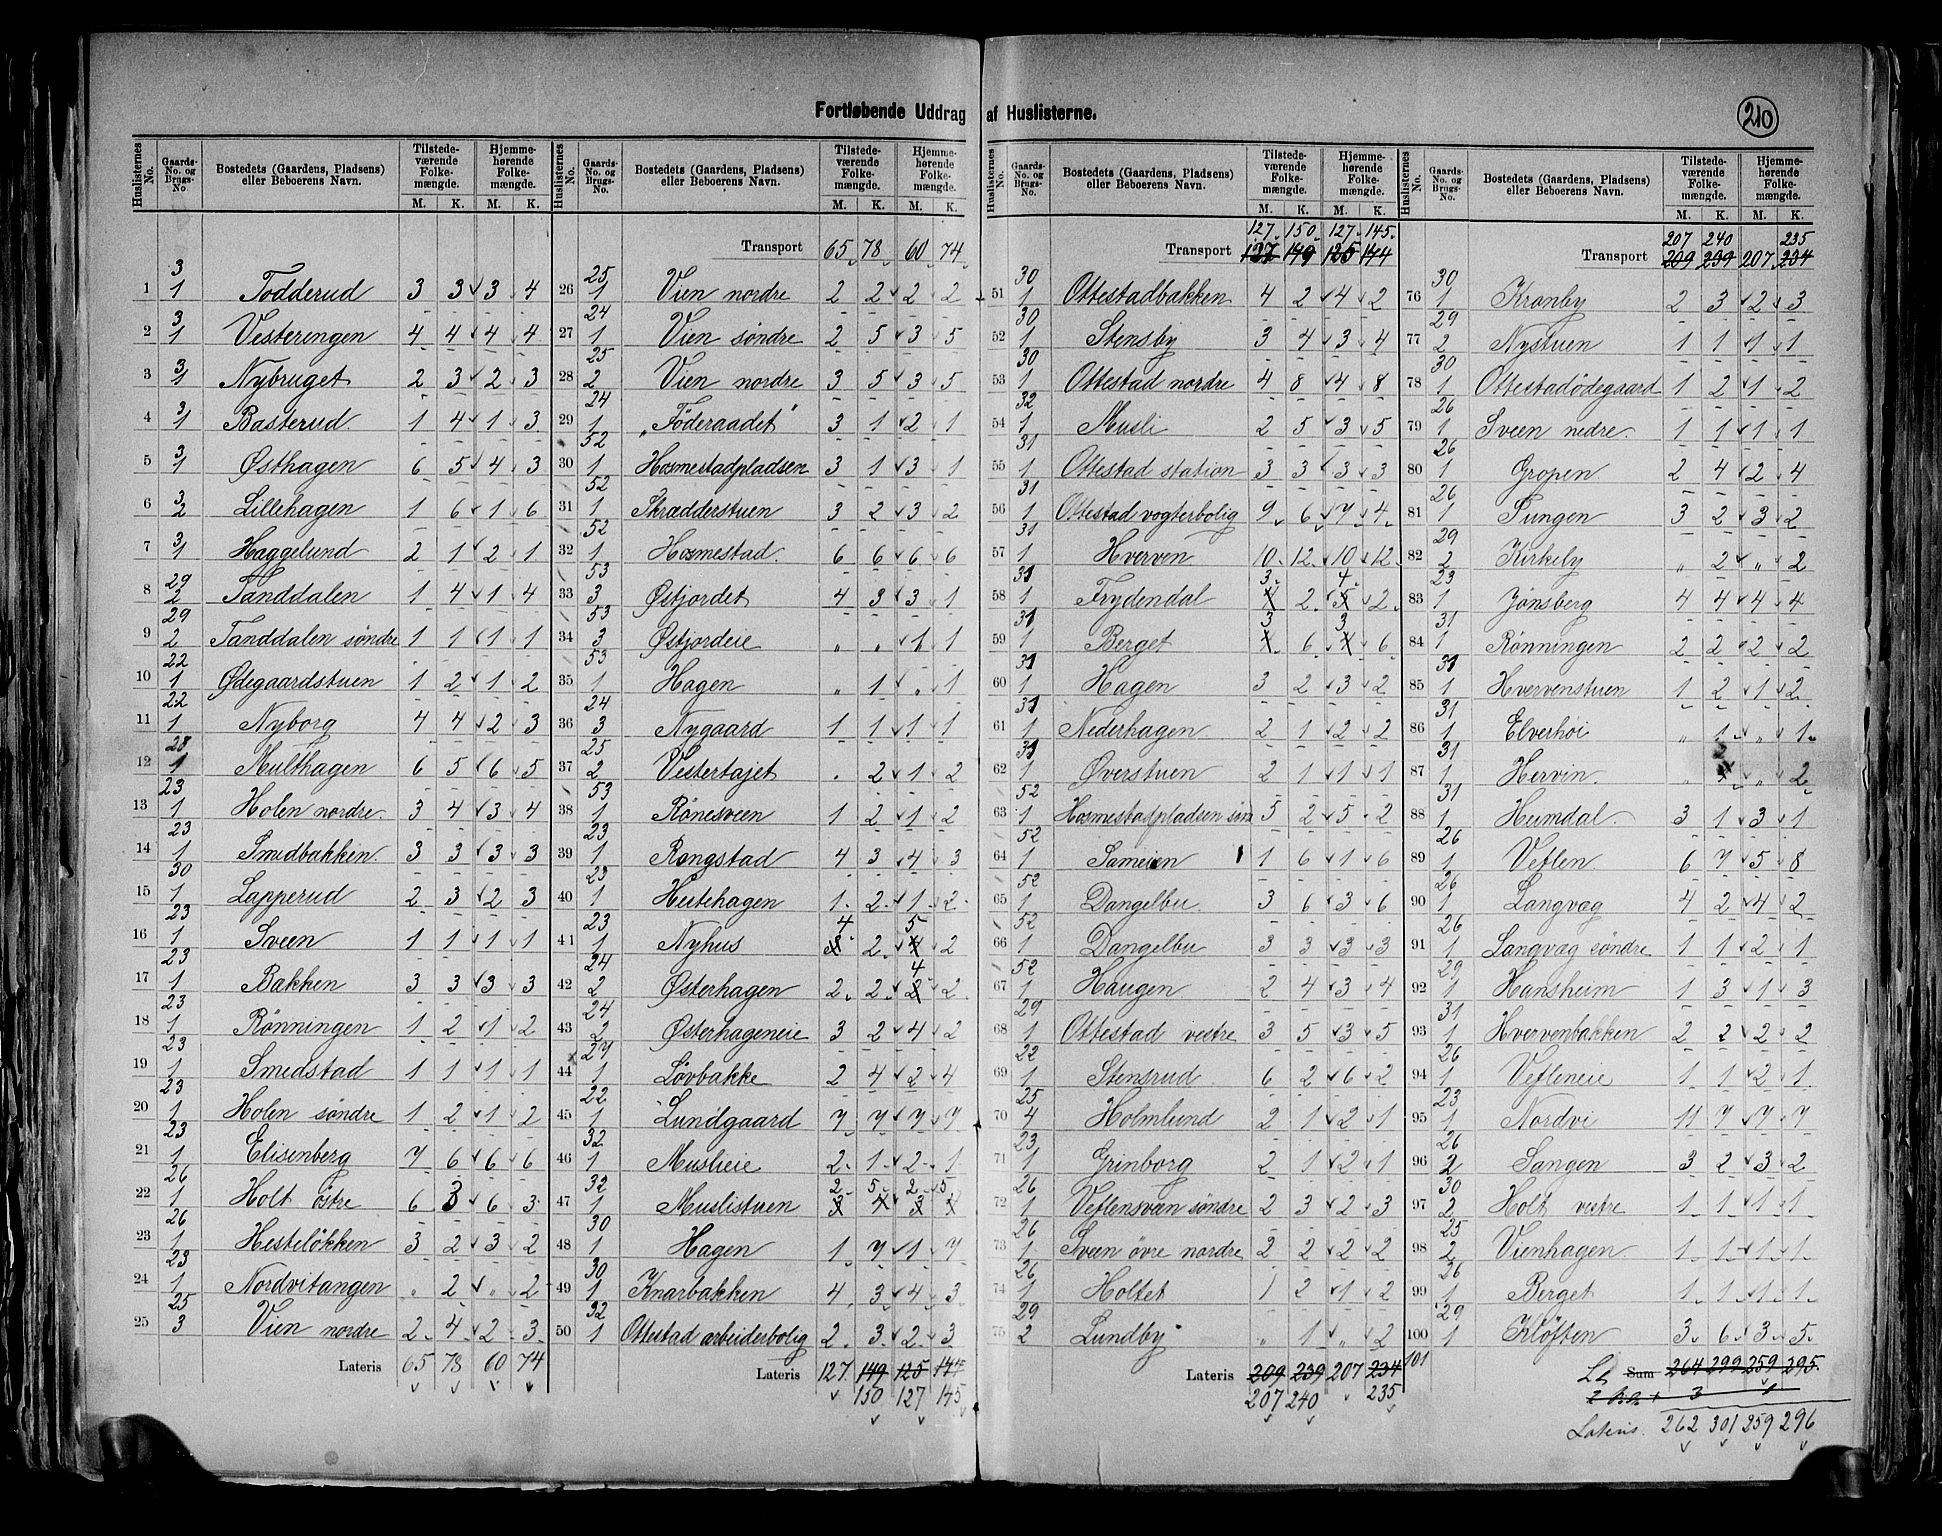 Fortløbende Uddrag af Huslisterne.
210
Huslisternes No. | Gaards-No. og Brugs-No | Bostedets (Gaardens, Pladsens) eller Beboerens Navn. | Tilstedeværende Folkemængde. M. K. | Hjemmehørende Folkemængde. M. K.
1 3/1 Todderud 3 3 3 4
2 3/1 Vesterengen 4 4 4 4
3 3/1 Nybruget 2 3 2 3
4 3/1 Basterud 1 4 1 3
5 3/1 Østhagen 6 5 4 3
6 3/2 Lillehagen 1 6 1 6
7 3/1 Haggelund 2 1 2 1
8 29/2 Tanddalen 1 4 1 4
9 29/2 Tanddalen søndre 1 1 1 1
10 22/1 Ødegaardstuen 1 2 1 2
11 22/1 Nyborg 4 4 2 3
12 28/1 Multhagen 6 5 6 5
13 23/1 Holen nordre. 3 4 3 4
14 23/1 Smedbakken. 3 3 3 3
15 30/1 Lapperud 2 3 2 3
16 23/1 Sveen 1 1 1 1
17 23/1 Bakken 3 3 3 3
18 23/1 Rønningen 1 2 1 2
19 23/1 Smedstad 1 1 1 1
20 23/1 Holen søndre 1 2 1 2
21 23/1 Elisenberg 7 6 6 6
22 26/1 Holt östre 6 3 6 3
23 26/1 Hesteløkken 3 2 3 2
24 23/1 Nordvitangen " 2 " 2
25 25/3 Vien nordre 2 4 2 3
Lateris 65 78 60 74
Huslisternes No. | Gaards-No. og Brugs-No. | Bostedets (Gaardens, Pladsens) eller Beboerens Navn. | Tilstedeværende Folkemængde. M. K. | Hjemmehørende Folkemængde. M. K.
Transport 65 78 60 74
26 25/1 Vien nordre 2 2 2 2
27 24/1 Vien søndre 2 5 3 5
28 25/2 Vien nordre 3 5 3 5
29 24/1 "Föderaadet" 3 1 2 1
30 52/1 Hosmestadpladsen 3 1 3 1
31 52/1 Skrædderstuen 3 2 3 2
32 52/1 Hosmestad. 6 6 6 6
33 53/3 Østjordet 4 3 3 1
34 53/3 Østjordeie " " 1 1
35 53/1 Hagen " 1 " 1
36 24/3 Nygaard 1 1 1 1
37 25/2 Vestertajet . 2 1 2
38 53/1 Rønesveen 1 2 1 2
39 23/1 Rongstad 4 3 4 3
40 23/1 Hestehagen 1 2 1 2
41 23/1 Nyhus 4 2 5 2
42 24/2 Østerhagen 2 2 4 2
43 24/2 Østerhageneie 3 2 4 2
44 27/1 Løvbakke 2 4 2 4
45 22/1 Lundgaard 7 7 7 7
46 32/1 Muslieie 2 1 2 1
47 32/1 Muslistuen 2 5 2 5
48 30/1 Hagen 1 7 1 7
49 30/1 Knarbakken 4 3 4 3
50 32/1 Ottestad arbeiderbolig 2 3 2 3
Lateris 127 149 125 144
150 127 145
Huslisternes No. | Gaards-No. og Brugs-No. | Bostedets (Gaardens, Pladsens) eller Beboerens Navn. | Tilstedeværende Folkemængde. M. K. | Hjemmehørende Folkemængde. M. K.
127 150 127 145
Transport 127 149 125 144
51 30/1 Ottestadbakken 4 2 4 2
52 30/1 Stensby 3 4 3 4
53 30/1 Ottestad nordre 4 8 4 8
54 32/1 Musli 2 5 3 5
55 31/1 Ottestad station 3 3 3 3
56 31/1 Ottestad vogterbolig 9 6 7 4
57 31/1 Hverven 10 12 10 12
58 31/1 Frydendal 3 2 4 2
59 31/1 Berget 3 6 3 6
60 31/1 Hagen 3 2 3 2
61 31/1 Nederhagen 2 1 2 2
62 31/1 Øverstuen 2 1 1 1
63 52/1 Hosmestadpladsen 5 2 5 2
64 52/1 Sameien 1 6 1 6
65 52/1 Dangelbu 3 6 3 6
66 52/1 Dangelbu 3 3 3 3
67 52/1 Haugen 2 4 3 4
68 29/1 Ottestad vestre 3 5 3 5
69 22/1 Stensrud 6 2 6 2
70 25/4 Holmlund 2 1 2 1
71 23/1 Grinborg 2 1 2 1
72 26/1 Veflensveen søndre 2 3 2 3
73 26/1 Sveen övre nordre 2 2 2 2
74 26/1 Holtet 1 2 1 2
75 29/2 Lundby " 1 " 2
Lateris 209 239 207 234
207 240 235
Huslisternes No. | Gaards-No. og Brugs-No. | Bostedets (Gaardens, Pladsens) eller Beboerens Navn. | Tilstedeværende Folkemængde. M. K. | Hjemmehørende Folkemængde. M. K.
207 240 235
Transport 209 239 207 234
76 30/1 Kronby 2 3 2 3
77 29/2 Nystuen 1 1 1 1
78 30/1 Ottestadødegaard 1 2 1 2
79 26/1 Sveen nedre. 1 1 1 1
80 26/1 Gropen 2 4 2 4
81 26/1 Tungen 3 2 3 2
82 29/2 Kirkeby " 2 " 2
83 23/1 Jønsberg 4 4 4 4
84 31/1 Rønningen 2 2 2 2
85 31/1 Hvervenstuen 1 2 1 2
86 31/1 Elverhöi " 1 " 1
87 31/1 Hervin. " " 2
88 31/1 Humdal. 3 1 3 1
89 26/1 Veflen 6 7 5 8
90 26/1 Langvag 4 2 4 2
91 26/1 Langvæg søndre 1 1 2 1
92 29/1 Hansheim 1 3 1 3
93 31/1 Hvervenbakken 2 2 2 2
94 26/1 Vefleneie 1 1 2 1
95 23/1 Nordvi 11 7 7 7
96 26/2 Sangen 3 2 3 2
97 30/2 Holt vestre 1 1 1 1
98 25/2 Vienhagen 1 1 1 1
99 26/1 Berget 1 1 1 1
100 29/1 Kløften 3 6 3 5
101 Sum 264 299 259 295
Lateris. 262 301 259 296